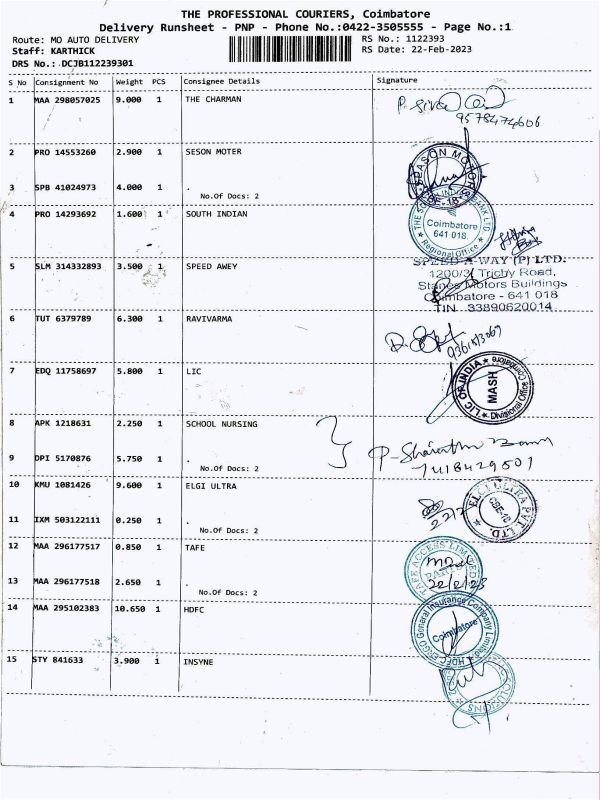 THE PROFESSIONAL COURIERS, Coimbatore
Delivery Runsheet - PNP - Phone No.:0422-3505555 - Page No.:1
Route: MO AUTO DELIVERY
RS No.: 1122393
Staff: KARTHICK
RS Date: 22-Feb-2023
DRS No.: DCJB112239301
S No Consignment No Weight PCS Consignee Details Signature
1 MAA 298057025 9.000 1 THE CHARMAN
9578474606
2 PRO 14553260 2.900 1 SESON MOTER
3 SPB 41024973 4.000 1 .
No.Of Docs: 2
4 PRO 14293692 1.600 1 SOUTH INDIAN
Coimbatore
641 018
Regional Office
5 SLM 314332893 3.500 1 SPEED AWEY
SPEED-A-WAY (P) LTD.
1200/3 Trichy Road,
Stanes Motors Buildings
Coimbatore - 641 018
TIN 33890620014
6 TUT 6379789 6.300 1 RAVIVARMA
7 EDQ 11758697 5.800 1 LIC
LIC OF INDIA
Coimbatore
MASH
Divisional Office
8 APK 1218631 2.250 1 SCHOOL NURSING
9 DPI 5170876 5.750 1 .
No.Of Docs: 2
7418429501
10 KMU 1081426 9.600 1 ELGI ULTRA
ELGI ULTRA PVT. LTD.
CBE-18
11 IXM 503122111 0.250 1 .
No.Of Docs: 2
12 MAA 296177517 0.850 1 TAFE
TAFE ACCESS LIMITED
22/2/23
13 MAA 296177518 2.650 1 .
No.Of Docs: 2
14 MAA 295102383 10.650 1 HDFC
HDFC ERGO General Insurance Company Limited
Coimbatore
15 STY 841633 3.900 1 INSYNE